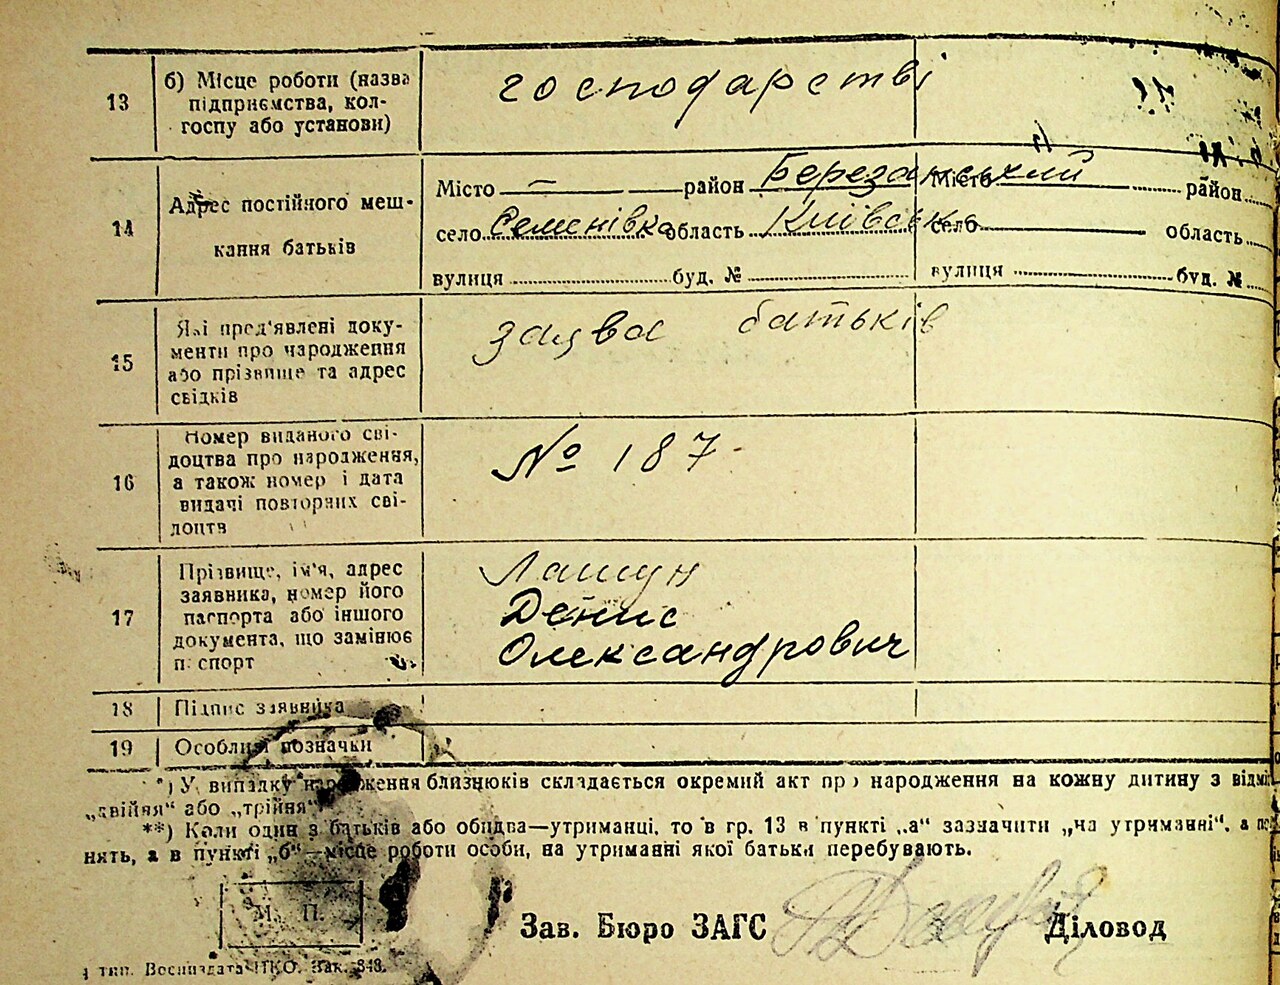 13 б) Місце роботи (назва підприємства, колгоспу або установи) господарстві
14 Адрес постійного мешкання батьків
Місто — район Березанський Місто район
село Семенівка область Київська село область
вулиця буд. № вулиця буд. №
15 Які пред'явлені документи про народження або прізвище та адрес свідків заява батьків
16 Номер виданого свідоцтва про народження, а також номер і дата видачі повторних свідоцтв № 187
17 Прізвище, ім'я, адрес заявника, номер його паспорта або іншого документа, що замінює паспорт
Лашун
Денис
Олександрович
18 Підпис заявника
19 Особливі позначки
*) У випадку народження близнюків складається окремий акт про народження на кожну дитину з
„двійня“ або „трійня“
**) Коли один з батьків або обидва—утриманці, то в гр. 13 в пункті „а“ зазначити „на утриманні“, а
нять, а в пункті „б“—місце роботи особи, на утриманні якої батьки перебувають.
М. П.
Зав. Бюро ЗАГС Діловод
тип. Воениздата НКО. Зак. 343.